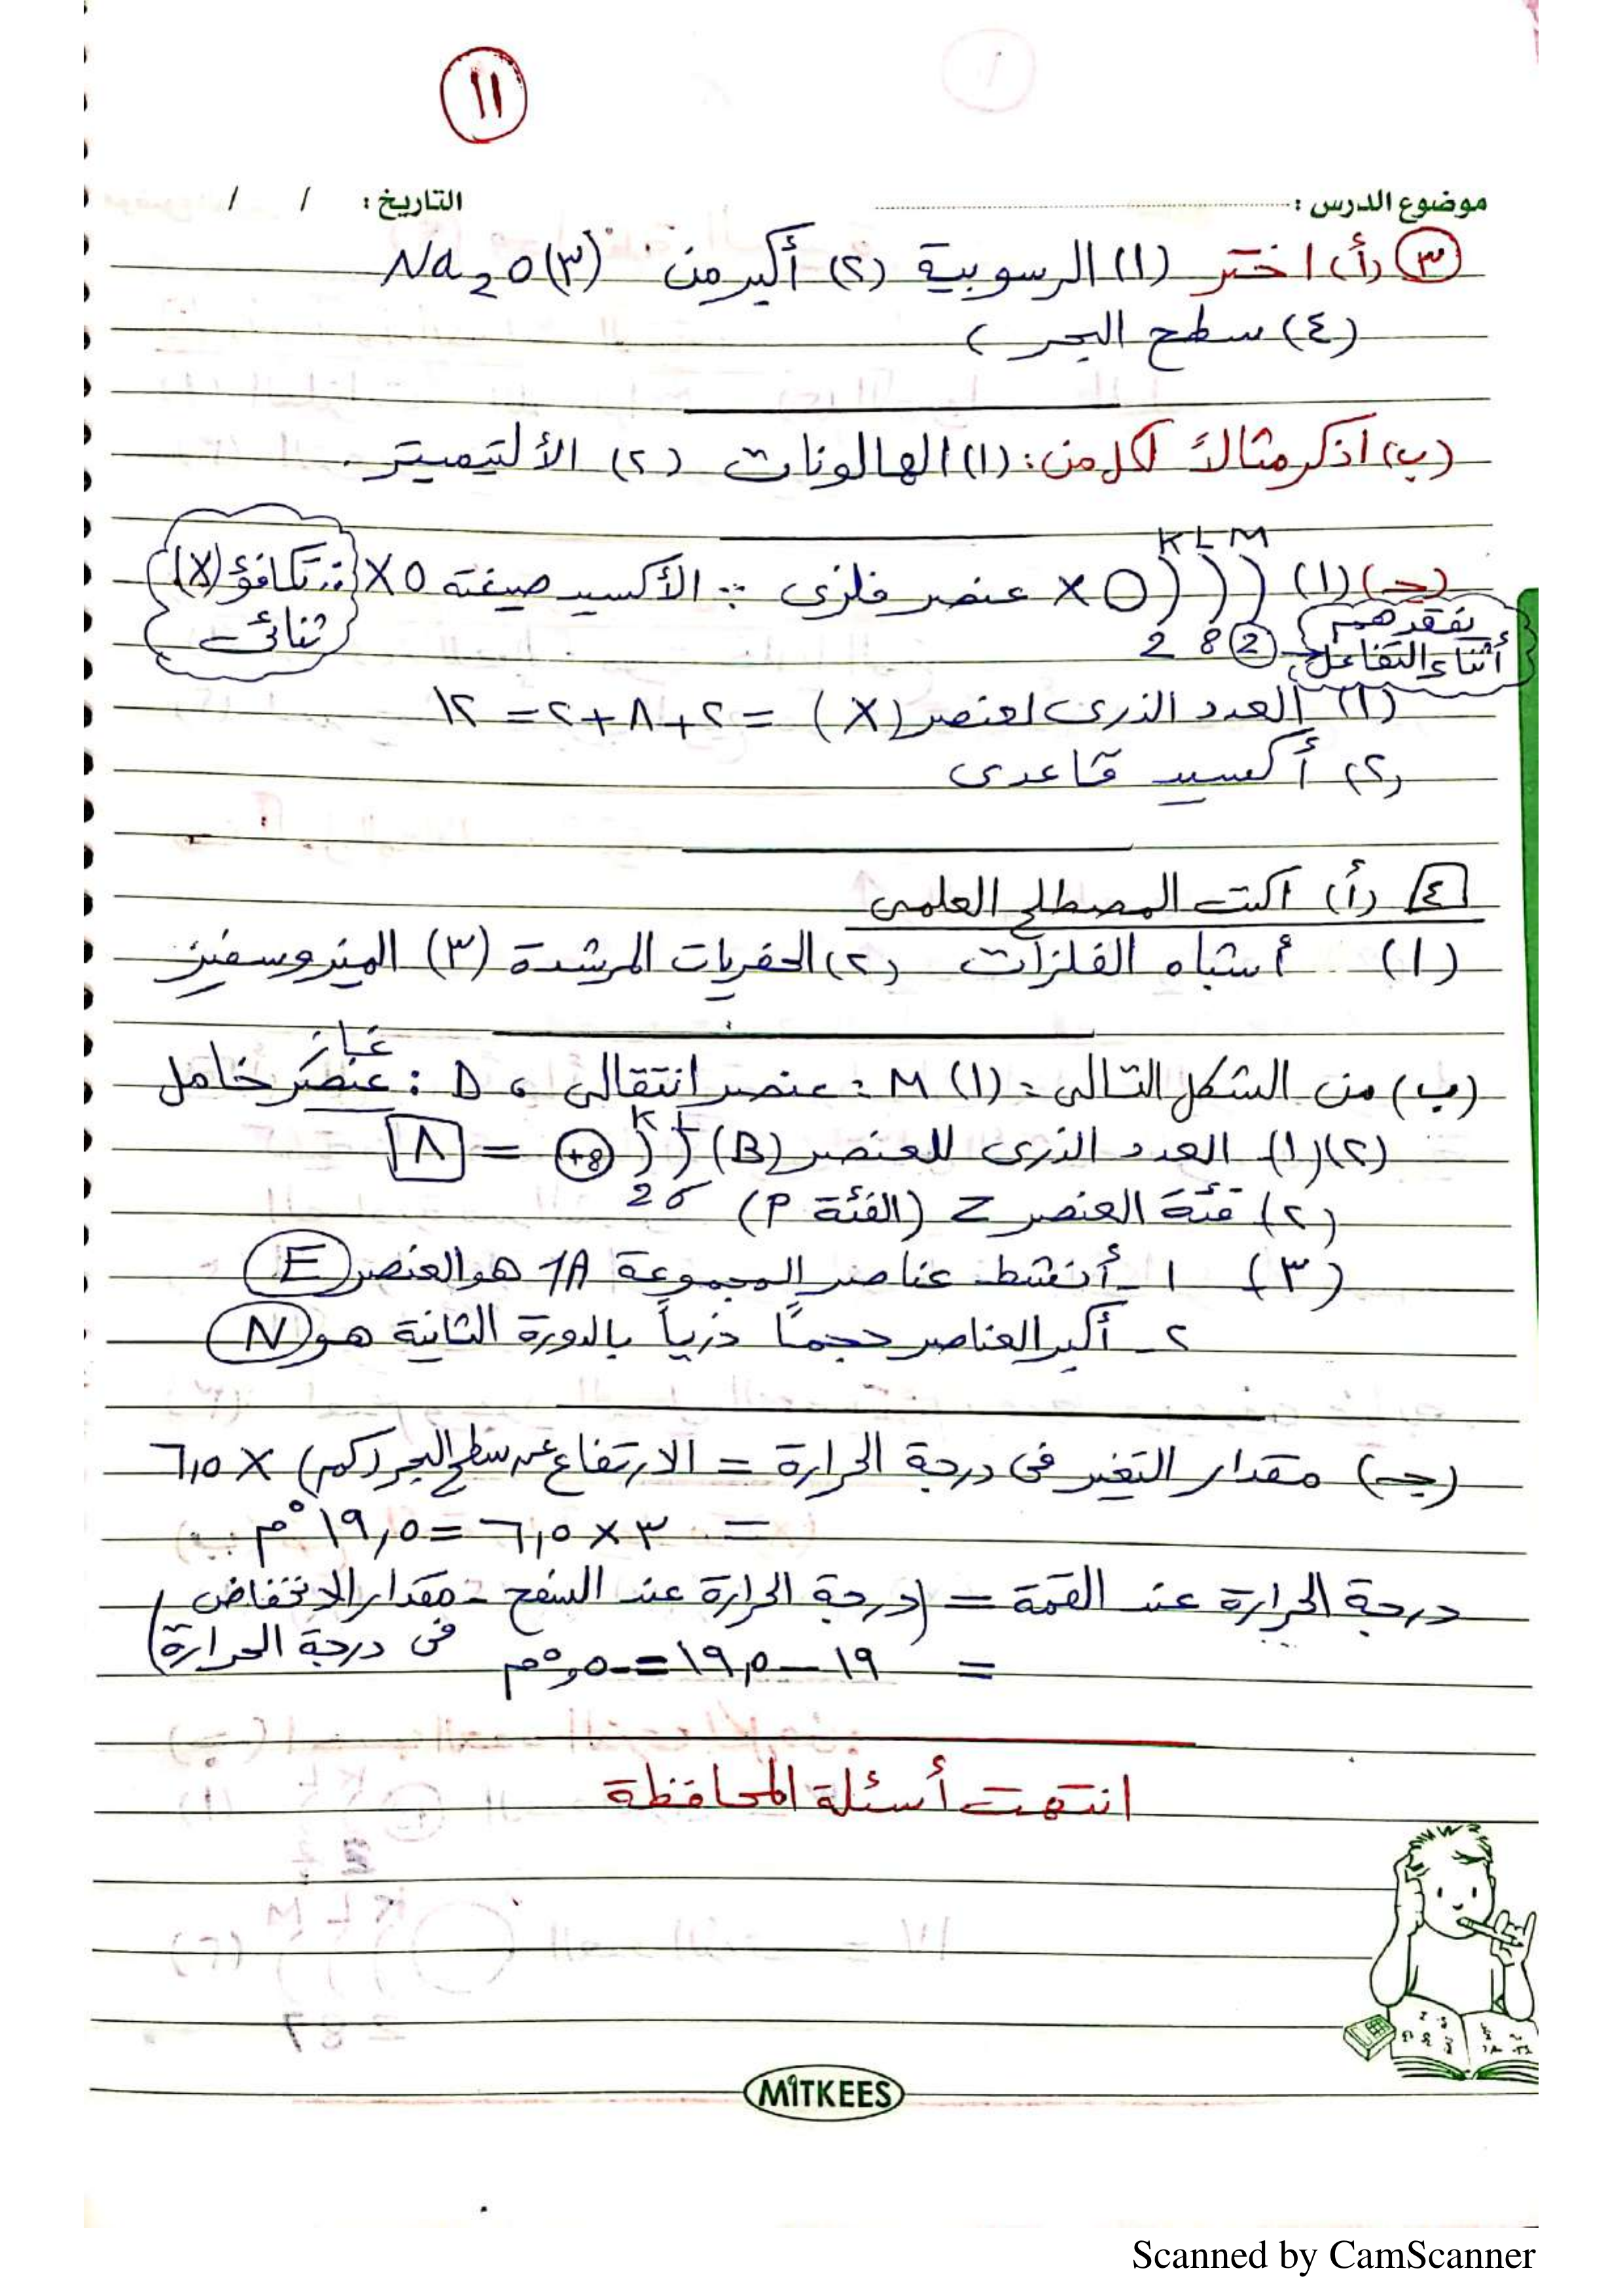 ١١
موضوع الدرس : التاريخ : / /
٣ (أ) اختر (١) الرسوبية (٢) أكبر من (٣) Na2O
(٤) سطح البحر
(ب) اذكر مثالاً لكل من : (١) الهالونات (٢) الألتيميتر .
K L M
(جـ) (١) X عنصر فلزى ∵ الأكسيد صيغته XO ∴ تكافؤ (X) ثنائى
2 8 2 نفقدهم أثناء التفاعل
(١) العدد الذرى لعنصر (X) = ٢+٨+٢ = ١٢
(٢) أكسيد قاعدى
٤ (أ) اكتب المصطلح العلمى
(١) أشباه الفلزات (٢) الحفريات المرشدة (٣) الميزوسفير
(ب) من الشكل التالى : (١) M : عنصر انتقالى ، D : عنصر غاز خامل
(٢) (١) العدد الذرى للعنصر (B) +8 K L = ٨
2 6
(٢) فئة العنصر Z (الفئة P)
(٣) ١ - أنشط عناصر المجموعة 1A هو العنصر E
٢ - أكبر العناصر حجمًا ذرياً بالدورة الثانية هو N
(جـ) مقدار التغير فى درجة الحرارة = الارتفاع عن سطح البحر (كم) × ٦,٥
= ٣ × ٦,٥ = ١٩,٥ °م
درجة الحرارة عند القمة = (درجة الحرارة عند السفح - مقدار الانخفاض فى درجة الحرارة)
= ١٩ – ١٩,٥ = -٠,٥ °م
انتهت أسئلة المحافظة
MITKEES
Scanned by CamScanner